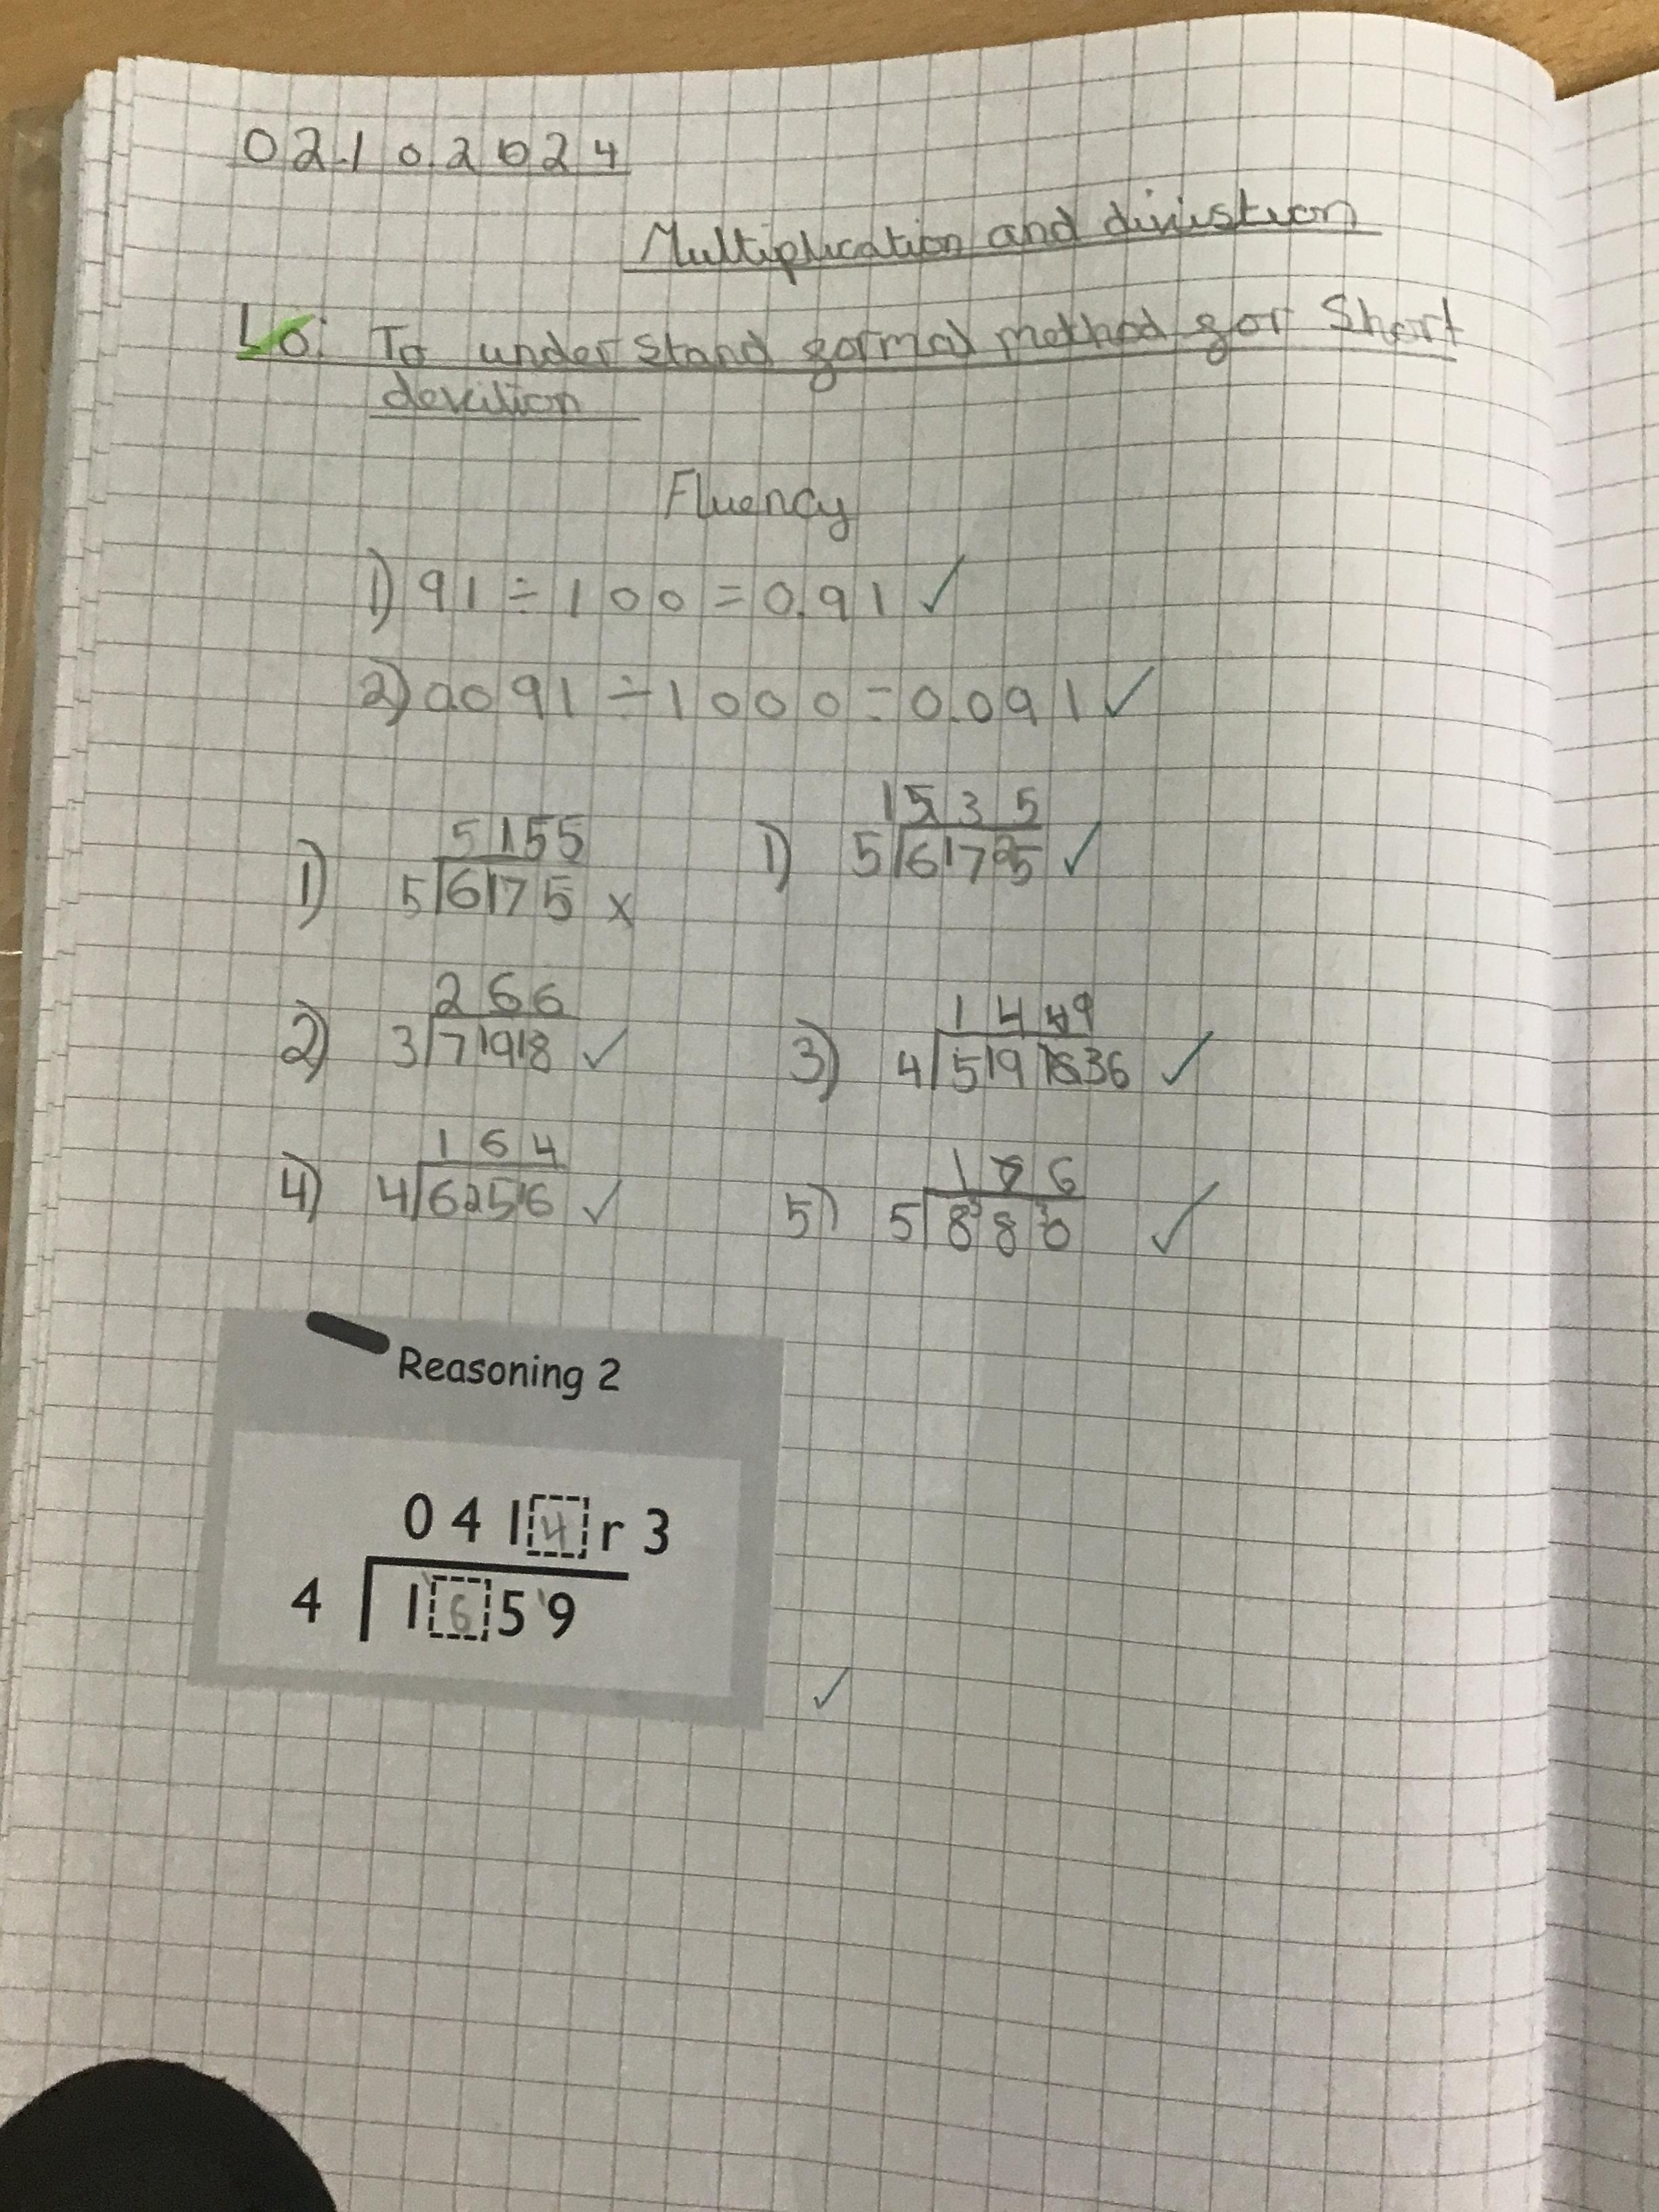 02.10.2024
Multiplication and divistion
Lo: To understand formal method for Short
devition
Fluency
1) 91 ÷ 100 = 0.91 ✓
2) 0091 ÷ 1000 = 0.091 ✓
5155
1) 5 6175 x
1535
1) 5 61725 ✓
266
2) 3 71918 ✓
1 4 9
3) 4 519 36 ✓
164
4) 4 62516 ✓
1 6
5) 5 8380 ✓
Reasoning 2
0 4 1 4 r 3
4 1 6 5 9
✓